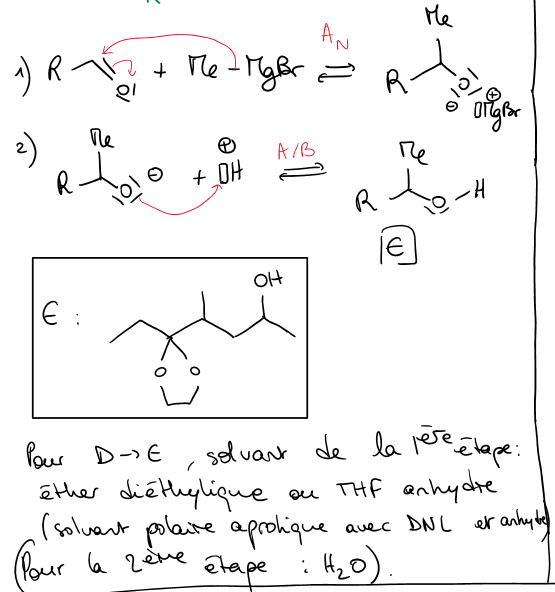 1) R O + Me – MgBr ⇌ A_N Me R O ⊖ ⊕ MgBr
2) Me R O ⊖ + ⊕ H ⇌ A/B Me R O – H
E
E : OH O O
Pour D → E , solvant de la 1ère étape :
éther diéthylique ou THF anhydre
(solvant polaire aprotique avec DNL et anhydre)
(Pour la 2ème étape : H2O).